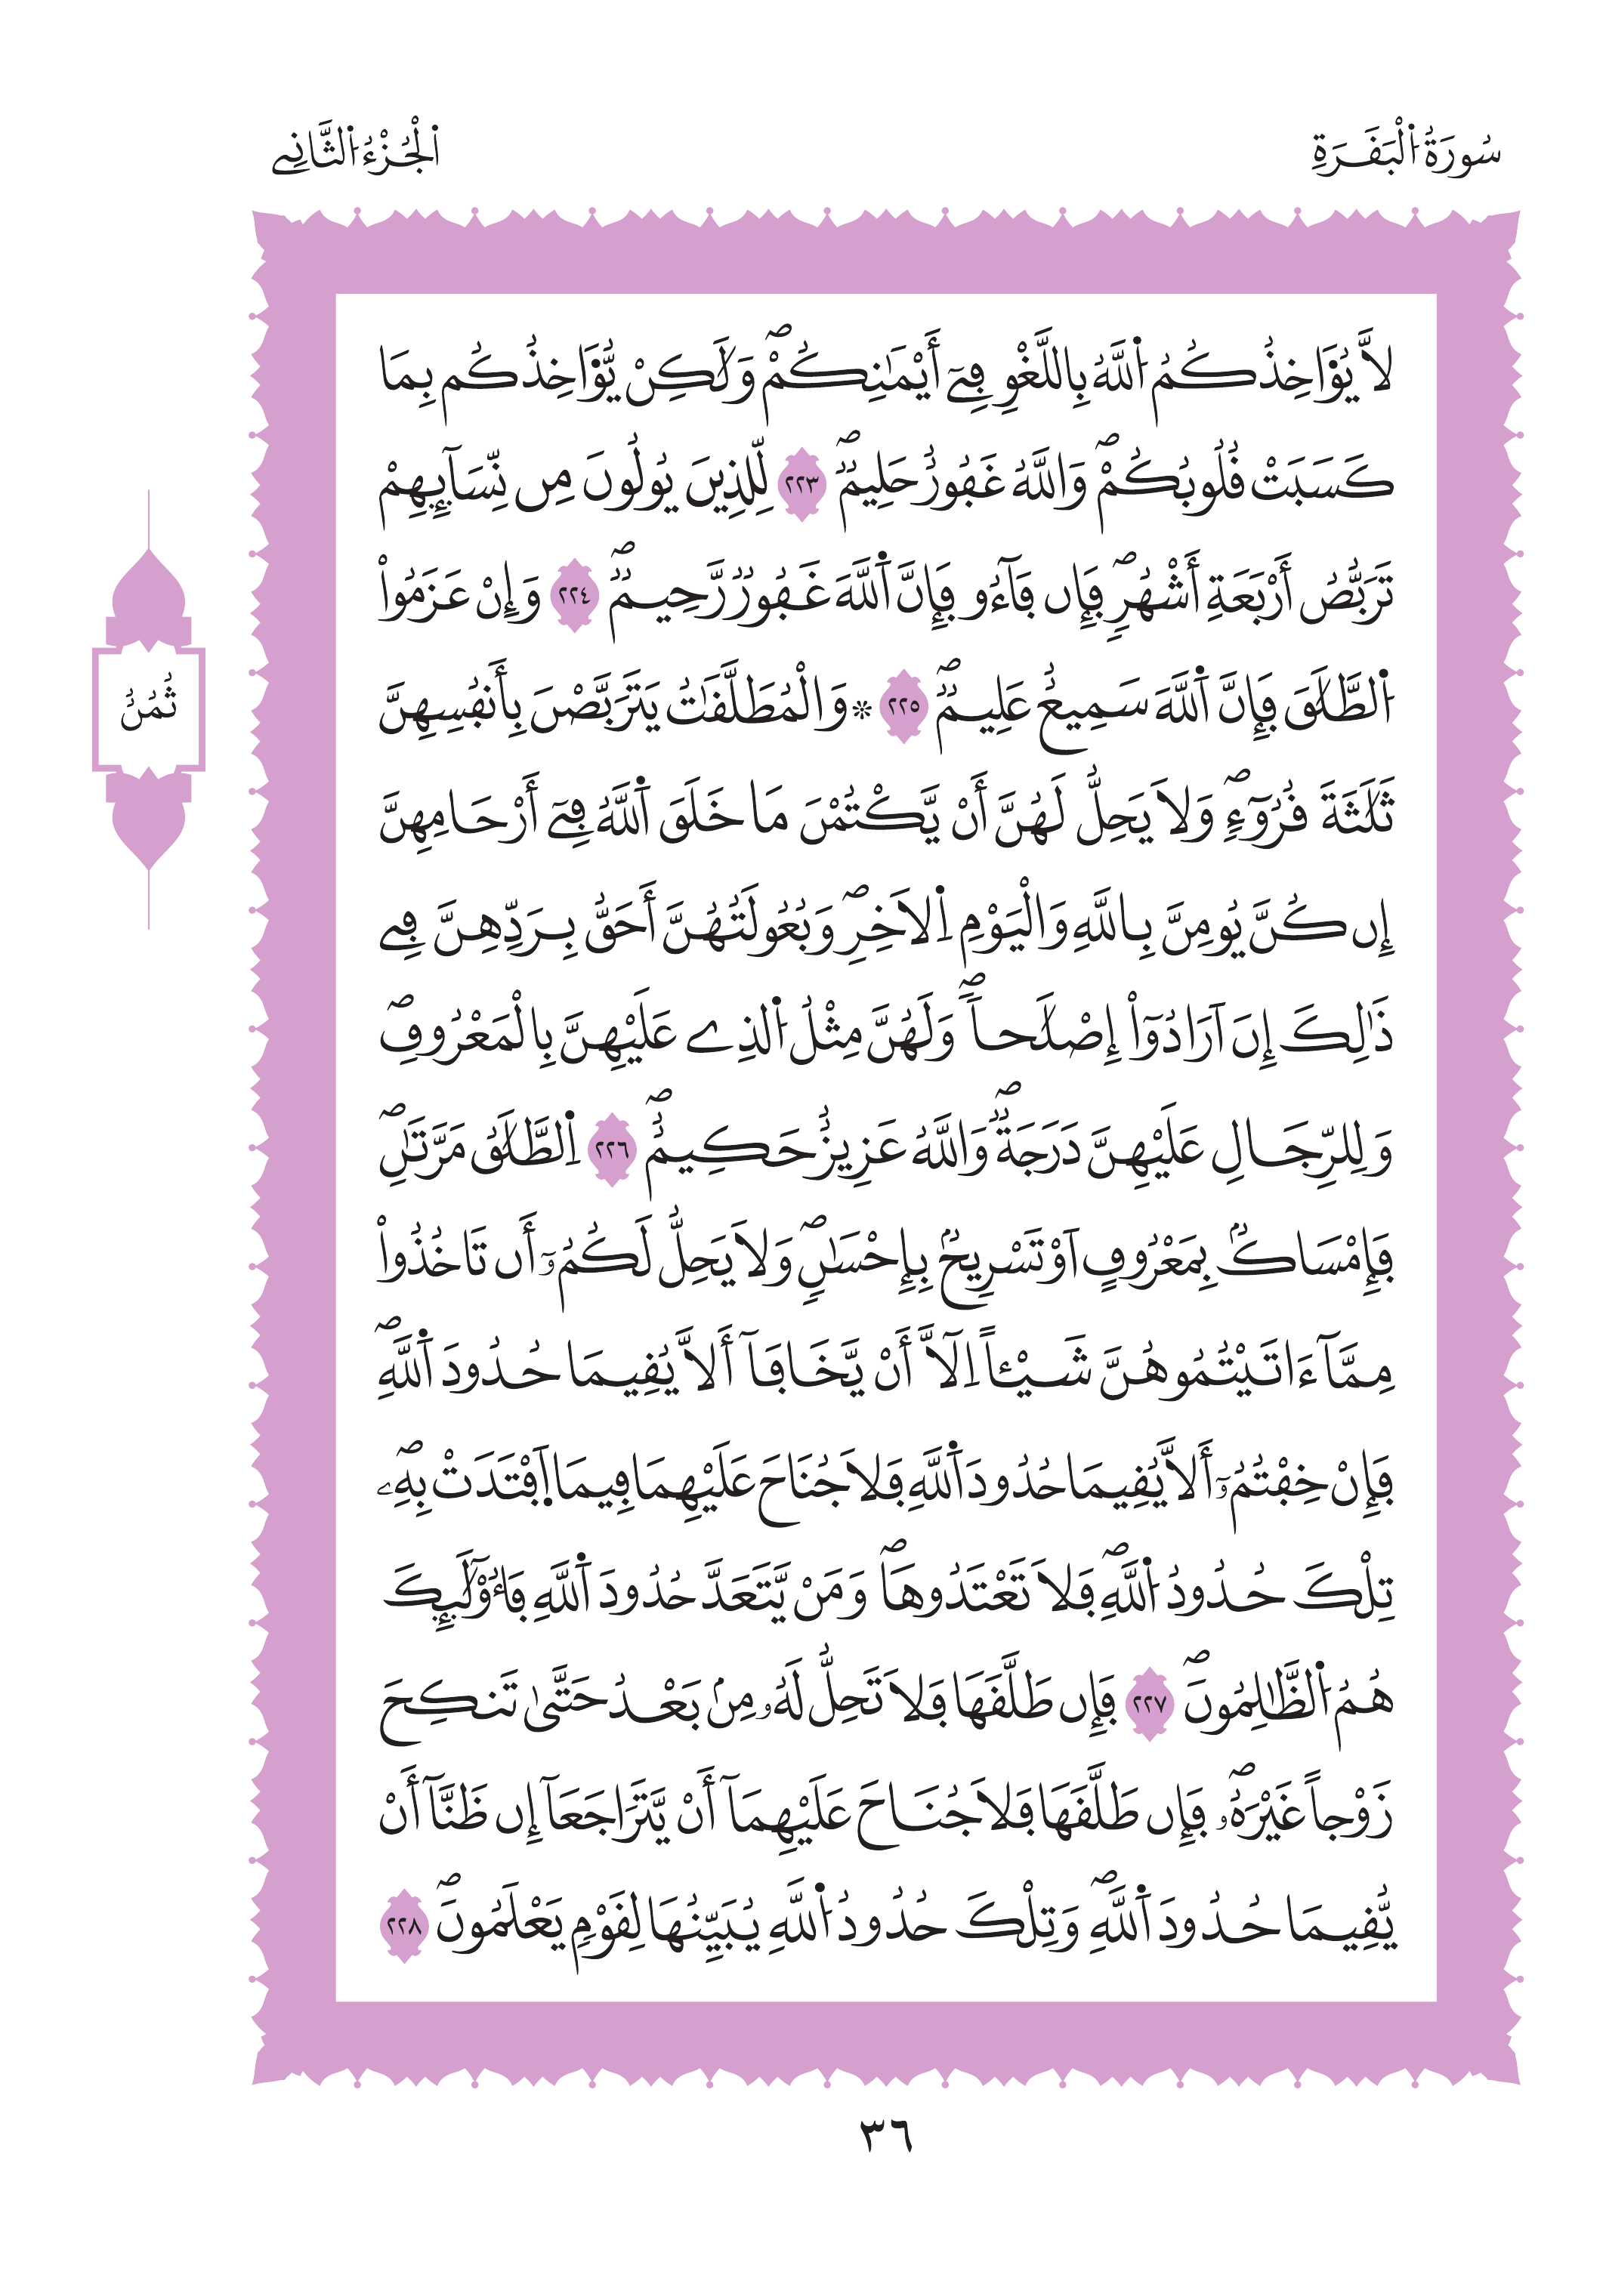 سُورَةُ اُ۬لْبَقَرَةِ
اَ۬لْجُزْءُ اُ۬لثَّانِے
لَّا يُؤَاخِذُكُمُ اُ۬للَّهُ بِاللَّغْوِ فِےٓ أَيْمَٰنِكُمْ وَلَٰكِنْ يُّؤَاخِذُكُم بِمَا
كَسَبَتْ قُلُوبُكُمْ وَاللَّهُ غَفُورٌ حَلِيمٌ ٢٢٣ لِّلذِينَ يُولُونَ مِن نِّسَآئِهِمْ
تَرَبُّصُ أَرْبَعَةِ أَشْهُرٖ فَإِن فَآءُو فَإِنَّ اَ۬للَّهَ غَفُورٌ رَّحِيمٌ ٢٢٤ وَإِنْ عَزَمُواْ
اُ۬لطَّلَٰقَ فَإِنَّ اَ۬للَّهَ سَمِيعٌ عَلِيمٌ ٢٢٥ ۞ وَالْمُطَلَّقَٰتُ يَتَرَبَّصْنَ بِأَنفُسِهِنَّ
ثَلَٰثَةَ قُرُوٓءٖ وَلَا يَحِلُّ لَهُنَّ أَنْ يَّكْتُمْنَ مَا خَلَقَ اَ۬للَّهُ فِےٓ أَرْحَامِهِنَّ
إِن كُنَّ يُومِنَّ بِاللَّهِ وَالْيَوْمِ اِ۬لَاخِرِ وَبُعُولَتُهُنَّ أَحَقُّ بِرَدِّهِنَّ فِے
ذَٰلِكَ إِنَ اَرَادُوٓاْ إِصْلَٰحاٗ وَلَهُنَّ مِثْلُ اُ۬لذِے عَلَيْهِنَّ بِالْمَعْرُوفِ
وَلِلرِّجَالِ عَلَيْهِنَّ دَرَجَةٌ وَاللَّهُ عَزِيزٌ حَكِيمٌ ٢٢٦ اِ۬لطَّلَٰقُ مَرَّتَٰنِ
فَإِمْسَاكٌ بِمَعْرُوفٍ اَوْ تَسْرِيحٌ بِإِحْسَٰنٖ وَلَا يَحِلُّ لَكُمُۥٓ أَن تَاخُذُواْ
مِمَّآ ءَاتَيْتُمُوهُنَّ شَيْـٔاً اِلَّآ أَنْ يَّخَافَآ أَلَّا يُقِيمَا حُدُودَ اَ۬للَّهِ
فَإِنْ خِفْتُمُۥٓ أَلَّا يُقِيمَا حُدُودَ اَ۬للَّهِ فَلَا جُنَاحَ عَلَيْهِمَا فِيمَا اَ۪فْتَدَتْ بِهِۦ
تِلْكَ حُدُودُ اُ۬للَّهِ فَلَا تَعْتَدُوهَا وَمَنْ يَّتَعَدَّ حُدُودَ اَ۬للَّهِ فَأُوْلَٰٓئِكَ
هُمُ اُ۬لظَّٰلِمُونَ ٢٢٧ فَإِن طَلَّقَهَا فَلَا تَحِلُّ لَهُۥ مِنۢ بَعْدُ حَتَّىٰ تَنكِحَ
زَوْجاً غَيْرَهُۥ فَإِن طَلَّقَهَا فَلَا جُنَاحَ عَلَيْهِمَآ أَنْ يَّتَرَاجَعَآ إِن ظَنَّآ أَنْ
يُّقِيمَا حُدُودَ اَ۬للَّهِ وَتِلْكَ حُدُودُ اُ۬للَّهِ يُبَيِّنُهَا لِقَوْمٖ يَعْلَمُونَ ٢٢٨
ثُمُنُ
٣٦